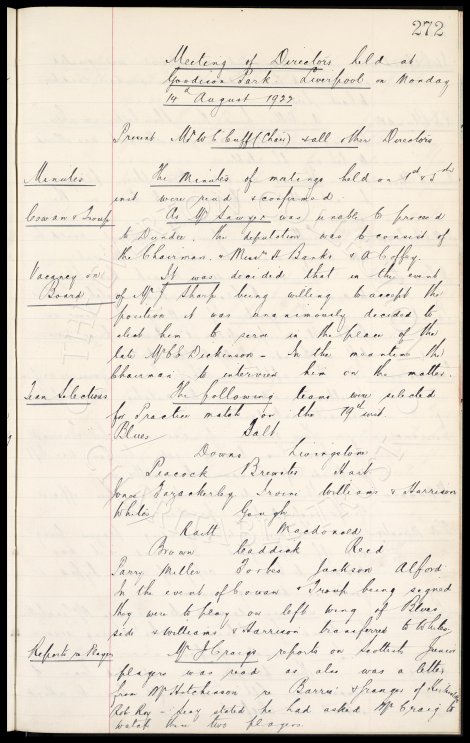 272
Meeting of Directors held at
Goodison Park Liverpool on Monday
14th August 1922
Present Mr W C Cuff (Chair) & all other Directors
Minutes The Minutes of meetings held on 1st & 5th
inst were read & confirmed.
Cowan & Troup As Mr Sawyer was unable to proceed
to Dundee, the deputation was to consist of
the Chairman, & Messrs A Banks & A Coffey.
Vacancy on Board It was decided that in the event
of Mr J Sharp being willing to accept the
position it was unanimously decided to
elect him to serve in the place of the
late Mr C E Dickinson - In the meantime the
Chairman to interview him on the matter.
Team Selections The following teams were selected
for Practice match on the 19th inst.
Blues Salt
Downs Livingstone
Peacock Brewster Hart
Jones Fazackerley Irvine Williams & Harrison
Whites Gough
Raitt Macdonald
Brown Caddick Reid
Parry Miller Forbes Jackson Alford
In the event of Cowan & Troup being signed
they were to play on left wing of Blues
side & Williams & Harrison transferred to Whites.
Reports re Players Mr J Craigs reports on Scottish Junior
players was read as also was a letter
from Mr Hutchinson re Barrie & Granger of
Rob Roy - stated he had asked Mr Craig to
watch these two players